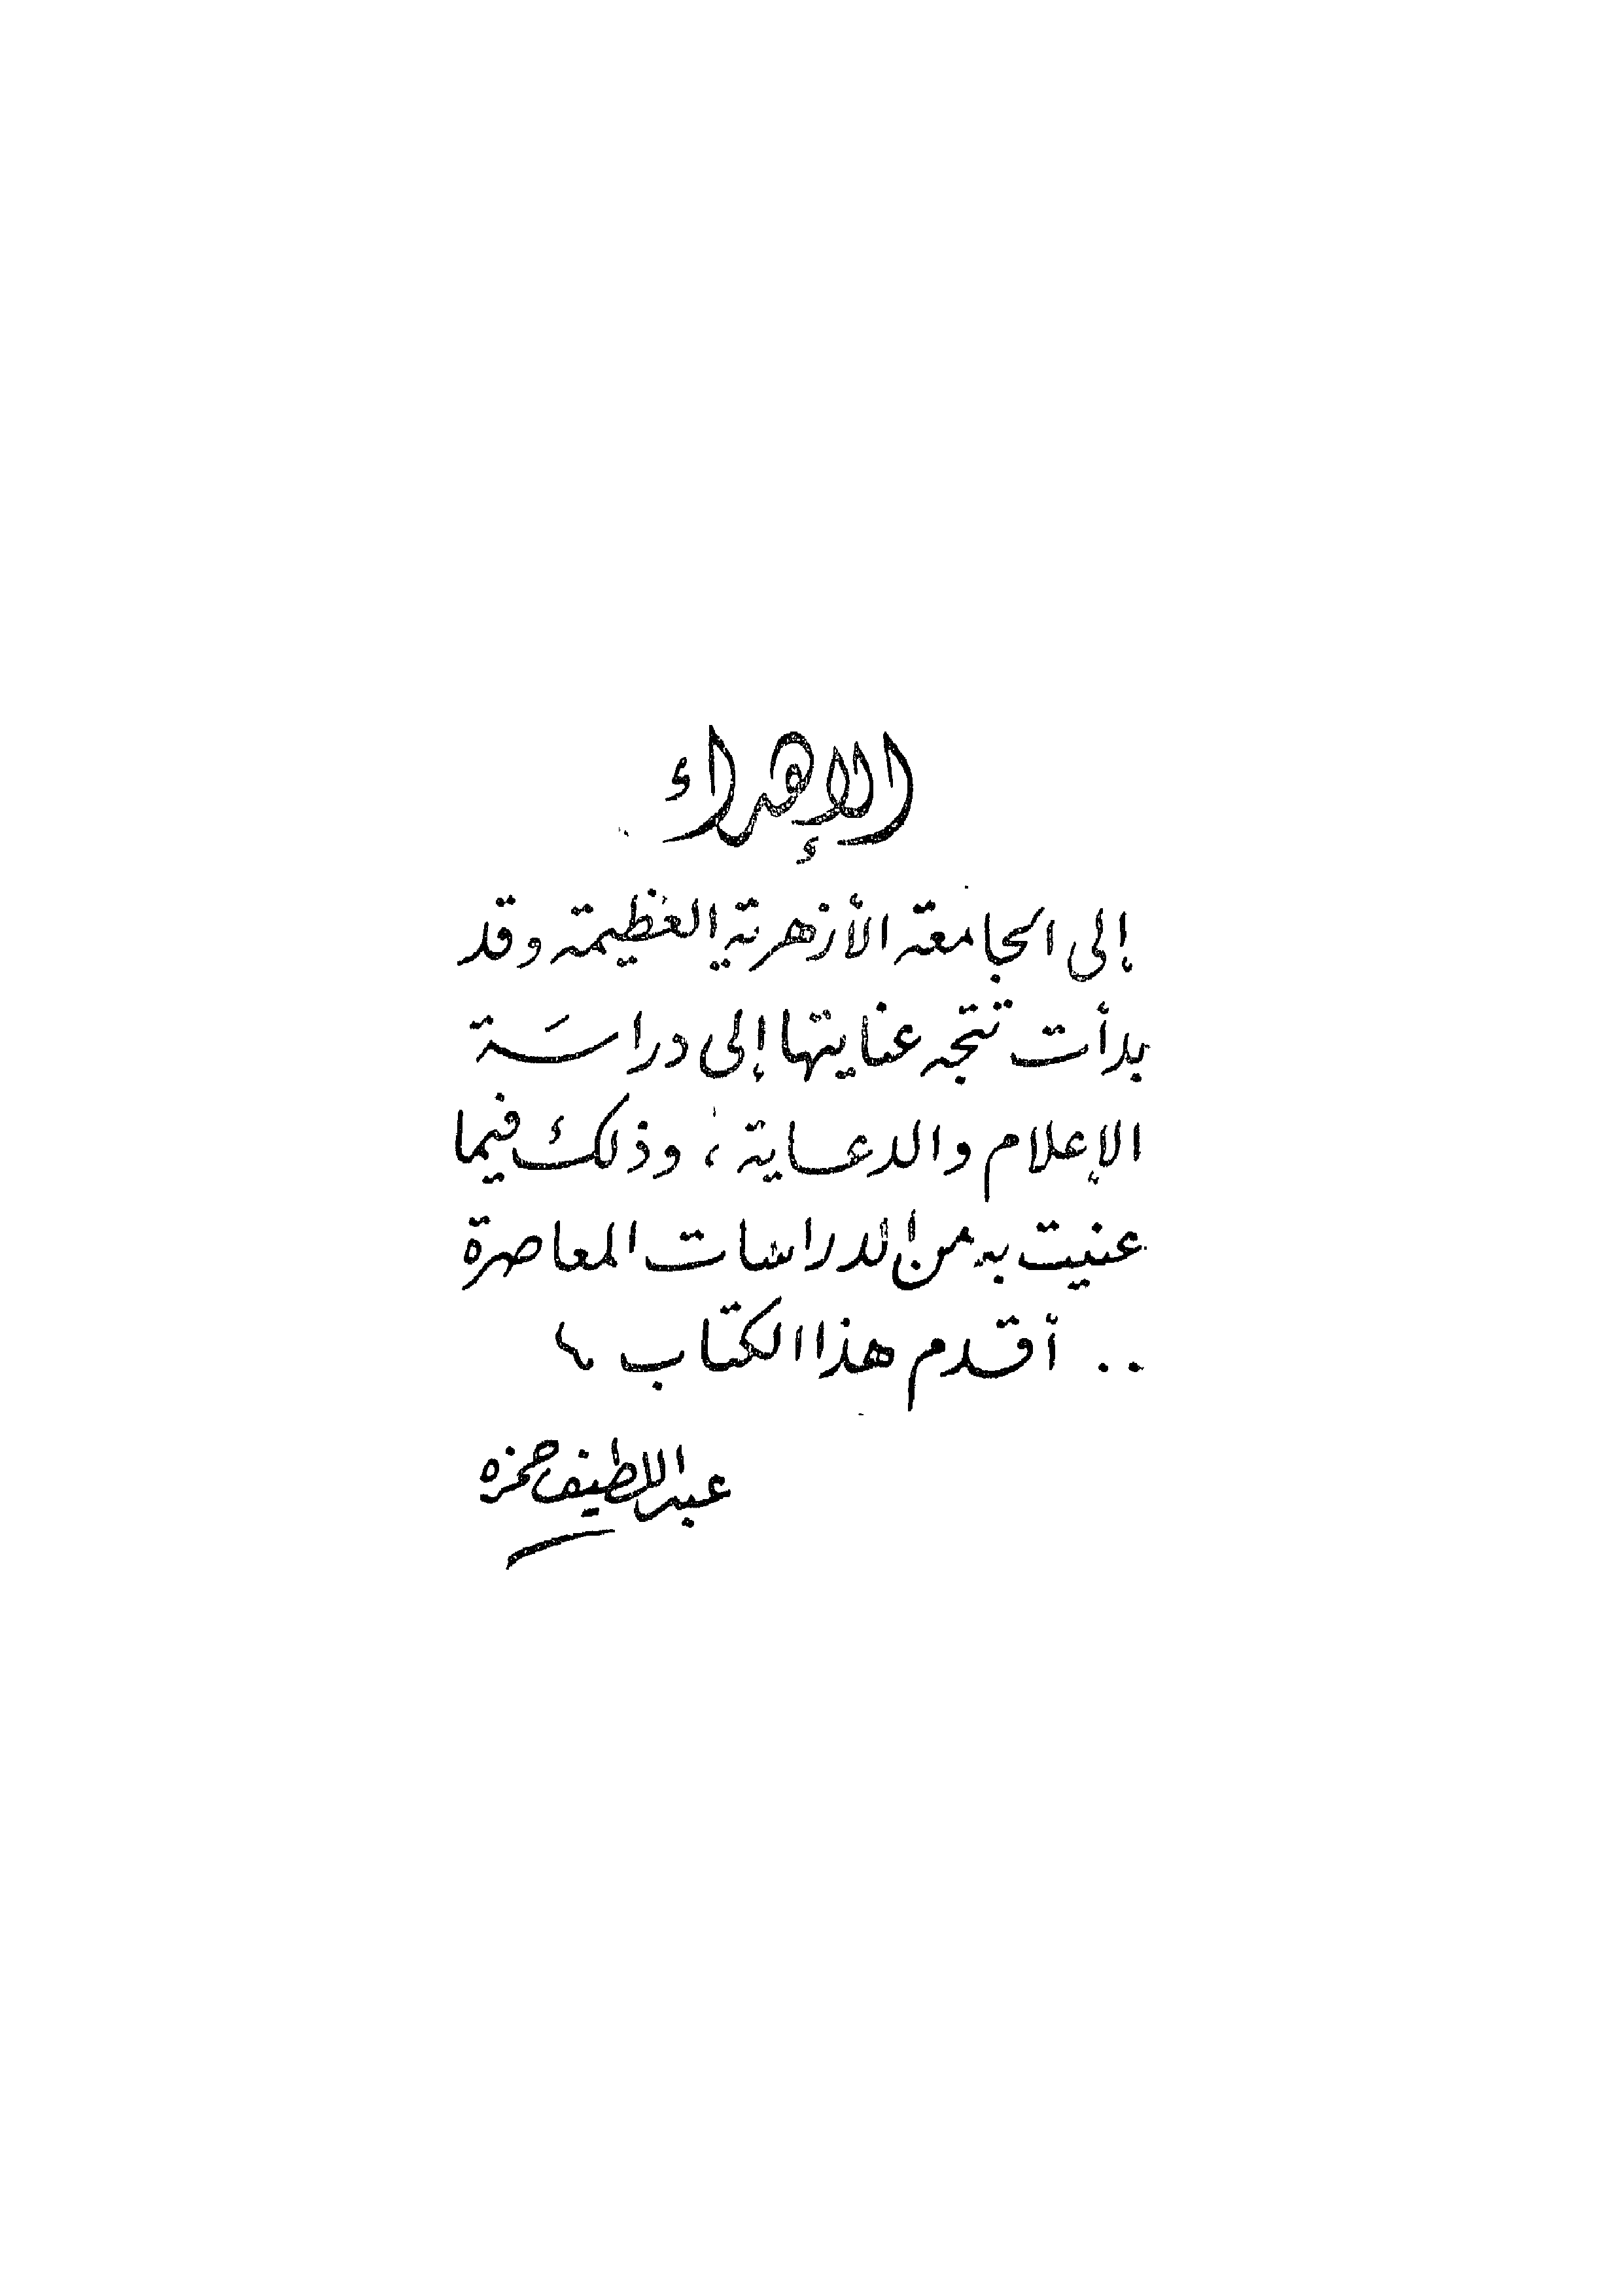 الإهداء
إلى الجامعة الأزهرية العظيمة وقد
بدأت تتجه عنايتها إلى دراسة
الإعلام والدعاية ، وذلك فيما
عنيت به من الدراسات المعاصرة
.. أقدم هذا الكتاب
عبد اللطيف حمزه